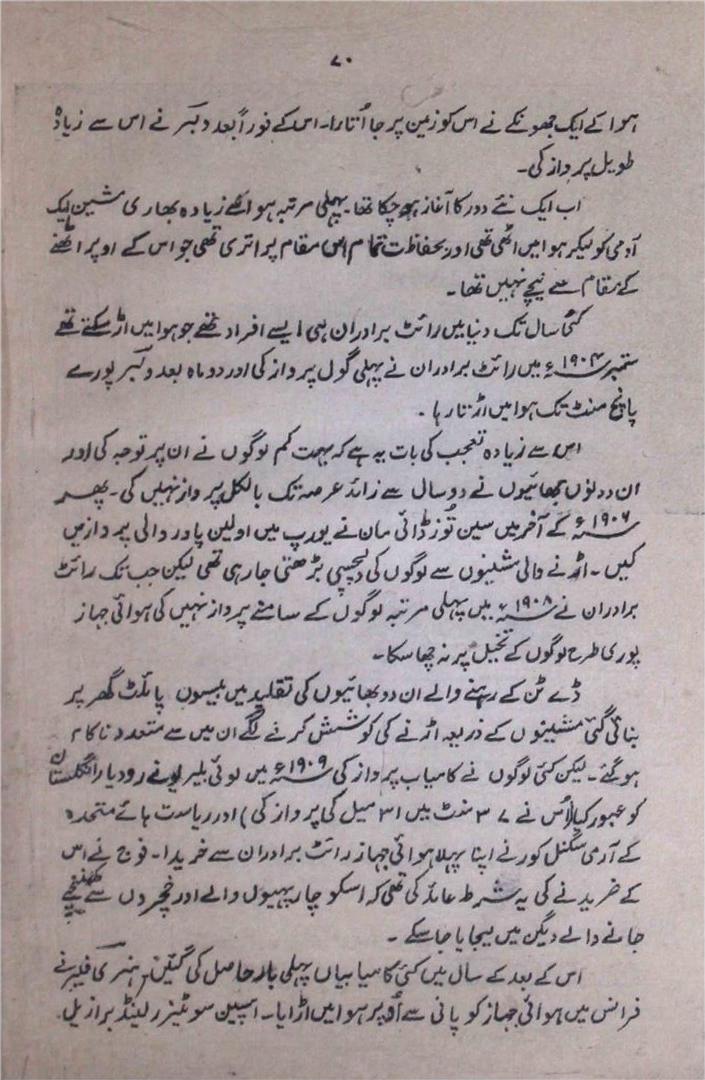 ۷۰
ہوا کے ایک جھونکے نے اس کو زمین پر جا اُتارا۔ اس کے فوراً بعد دلبر نے اس سے زیادہ
طویل پرواز کی۔
اب ایک نئے دور کا آغاز ہو چکا تھا۔ پہلی مرتبہ ہوا سے زیادہ بھاری مشین ایک
آدمی کو لیکر ہوا میں اٹھی تھی اور بحفاظت تمام اس مقام پر اتری تھی جو اس کے اوپر اٹھنے
کے مقام سے نیچے نہیں تھا۔
کئی سال تک دنیا میں رائٹ برادران ہی ایسے افراد تھے جو ہوا میں اڑ سکتے تھے
ستمبر ۱۹۰۴ء میں رائٹ برادران نے پہلی گول پرواز کی اور دو ماہ بعد ولبر پورے
پانچ منٹ تک ہوا میں اڑتا رہا۔
اس سے زیادہ تعجب کی بات یہ ہے کہ بہت کم لوگوں نے ان پر توجہ کی اور
ان دونوں بھائیوں نے دو سال سے زائد عرصہ تک بالکل پرواز نہیں کی۔ پھر
۱۹۰۶ء کے آخر میں سین تُوز ڈائی مان نے یورپ میں اولین پاور والی پروازیں
کیں۔ اڑنے والی مشینوں سے لوگوں کی دلچسپی بڑھتی جا رہی تھی لیکن جب تک رائٹ
برادران نے ۱۹۰۸ء میں پہلی مرتبہ لوگوں کے سامنے پرواز نہیں کی ہوائی جہاز
پوری طرح لوگوں کے تخیل پر نہ چھا سکا۔
ڈے ٹن کے رہنے والے ان دو بھائیوں کی تقلید میں بیسوں پائلٹ گھر پر
بنائی گئی مشینوں کے ذریعہ اڑنے کی کوشش کرنے لگے ان میں سے متعدد ناکام
ہو گئے۔ لیکن کئی لوگوں نے کامیاب پرواز کی ۱۹۰۹ء میں لوئی بلیریو نے رودبار انگلستان
کو عبور کیا (اُس نے ۳۷ منٹ میں ۳۱ میل کی پرواز کی) اور ریاست ہائے متحدہ
کے آرمی سگنل کور نے اپنا پہلا ہوائی جہاز رائٹ برادران سے خریدا۔ فوج نے اس
کے خریدنے کی یہ شرط عائد کی تھی کہ اسکو چار پہیوں والے اور خچروں سے کھینچے
جانے والے ویگن میں لیجایا جا سکے۔
اس کے بعد کے سال میں کئی کامیابیاں پہلی بار حاصل کی گئیں، ہنری فیبر نے
فرانس میں ہوائی جہاز کو پانی سے اُوپر ہوا میں اڑایا۔ اسپین سوئیزرلینڈ برازیل۔